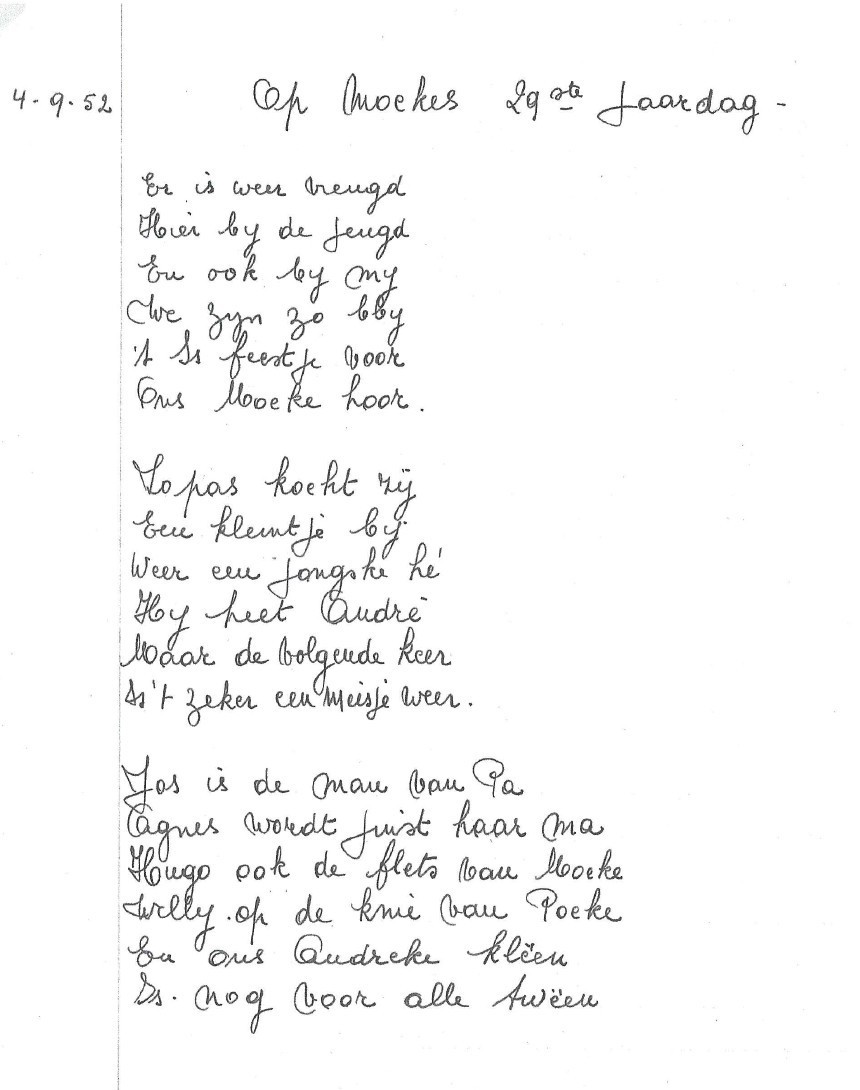 4-9-52 Op Moekes 29ste Jaardag -
Er is weer vreugd
Hier by de Jeugd
En ook by my
We zyn zo bly
't Is feestje voor
Ons Moeke hoor.
Zopas kocht zij
Een kleintje bij
Weer een jongske hé
Hy heet André
Maar de volgende keer
Is 't zeker een meisje weer.
Jos is de man van Pa
Agnes wordt juist haar ma
Hugo ook de flets van Moeke
Willy op de knie van Poeke
En ons Andreke kleen
Is nog voor alle tweën